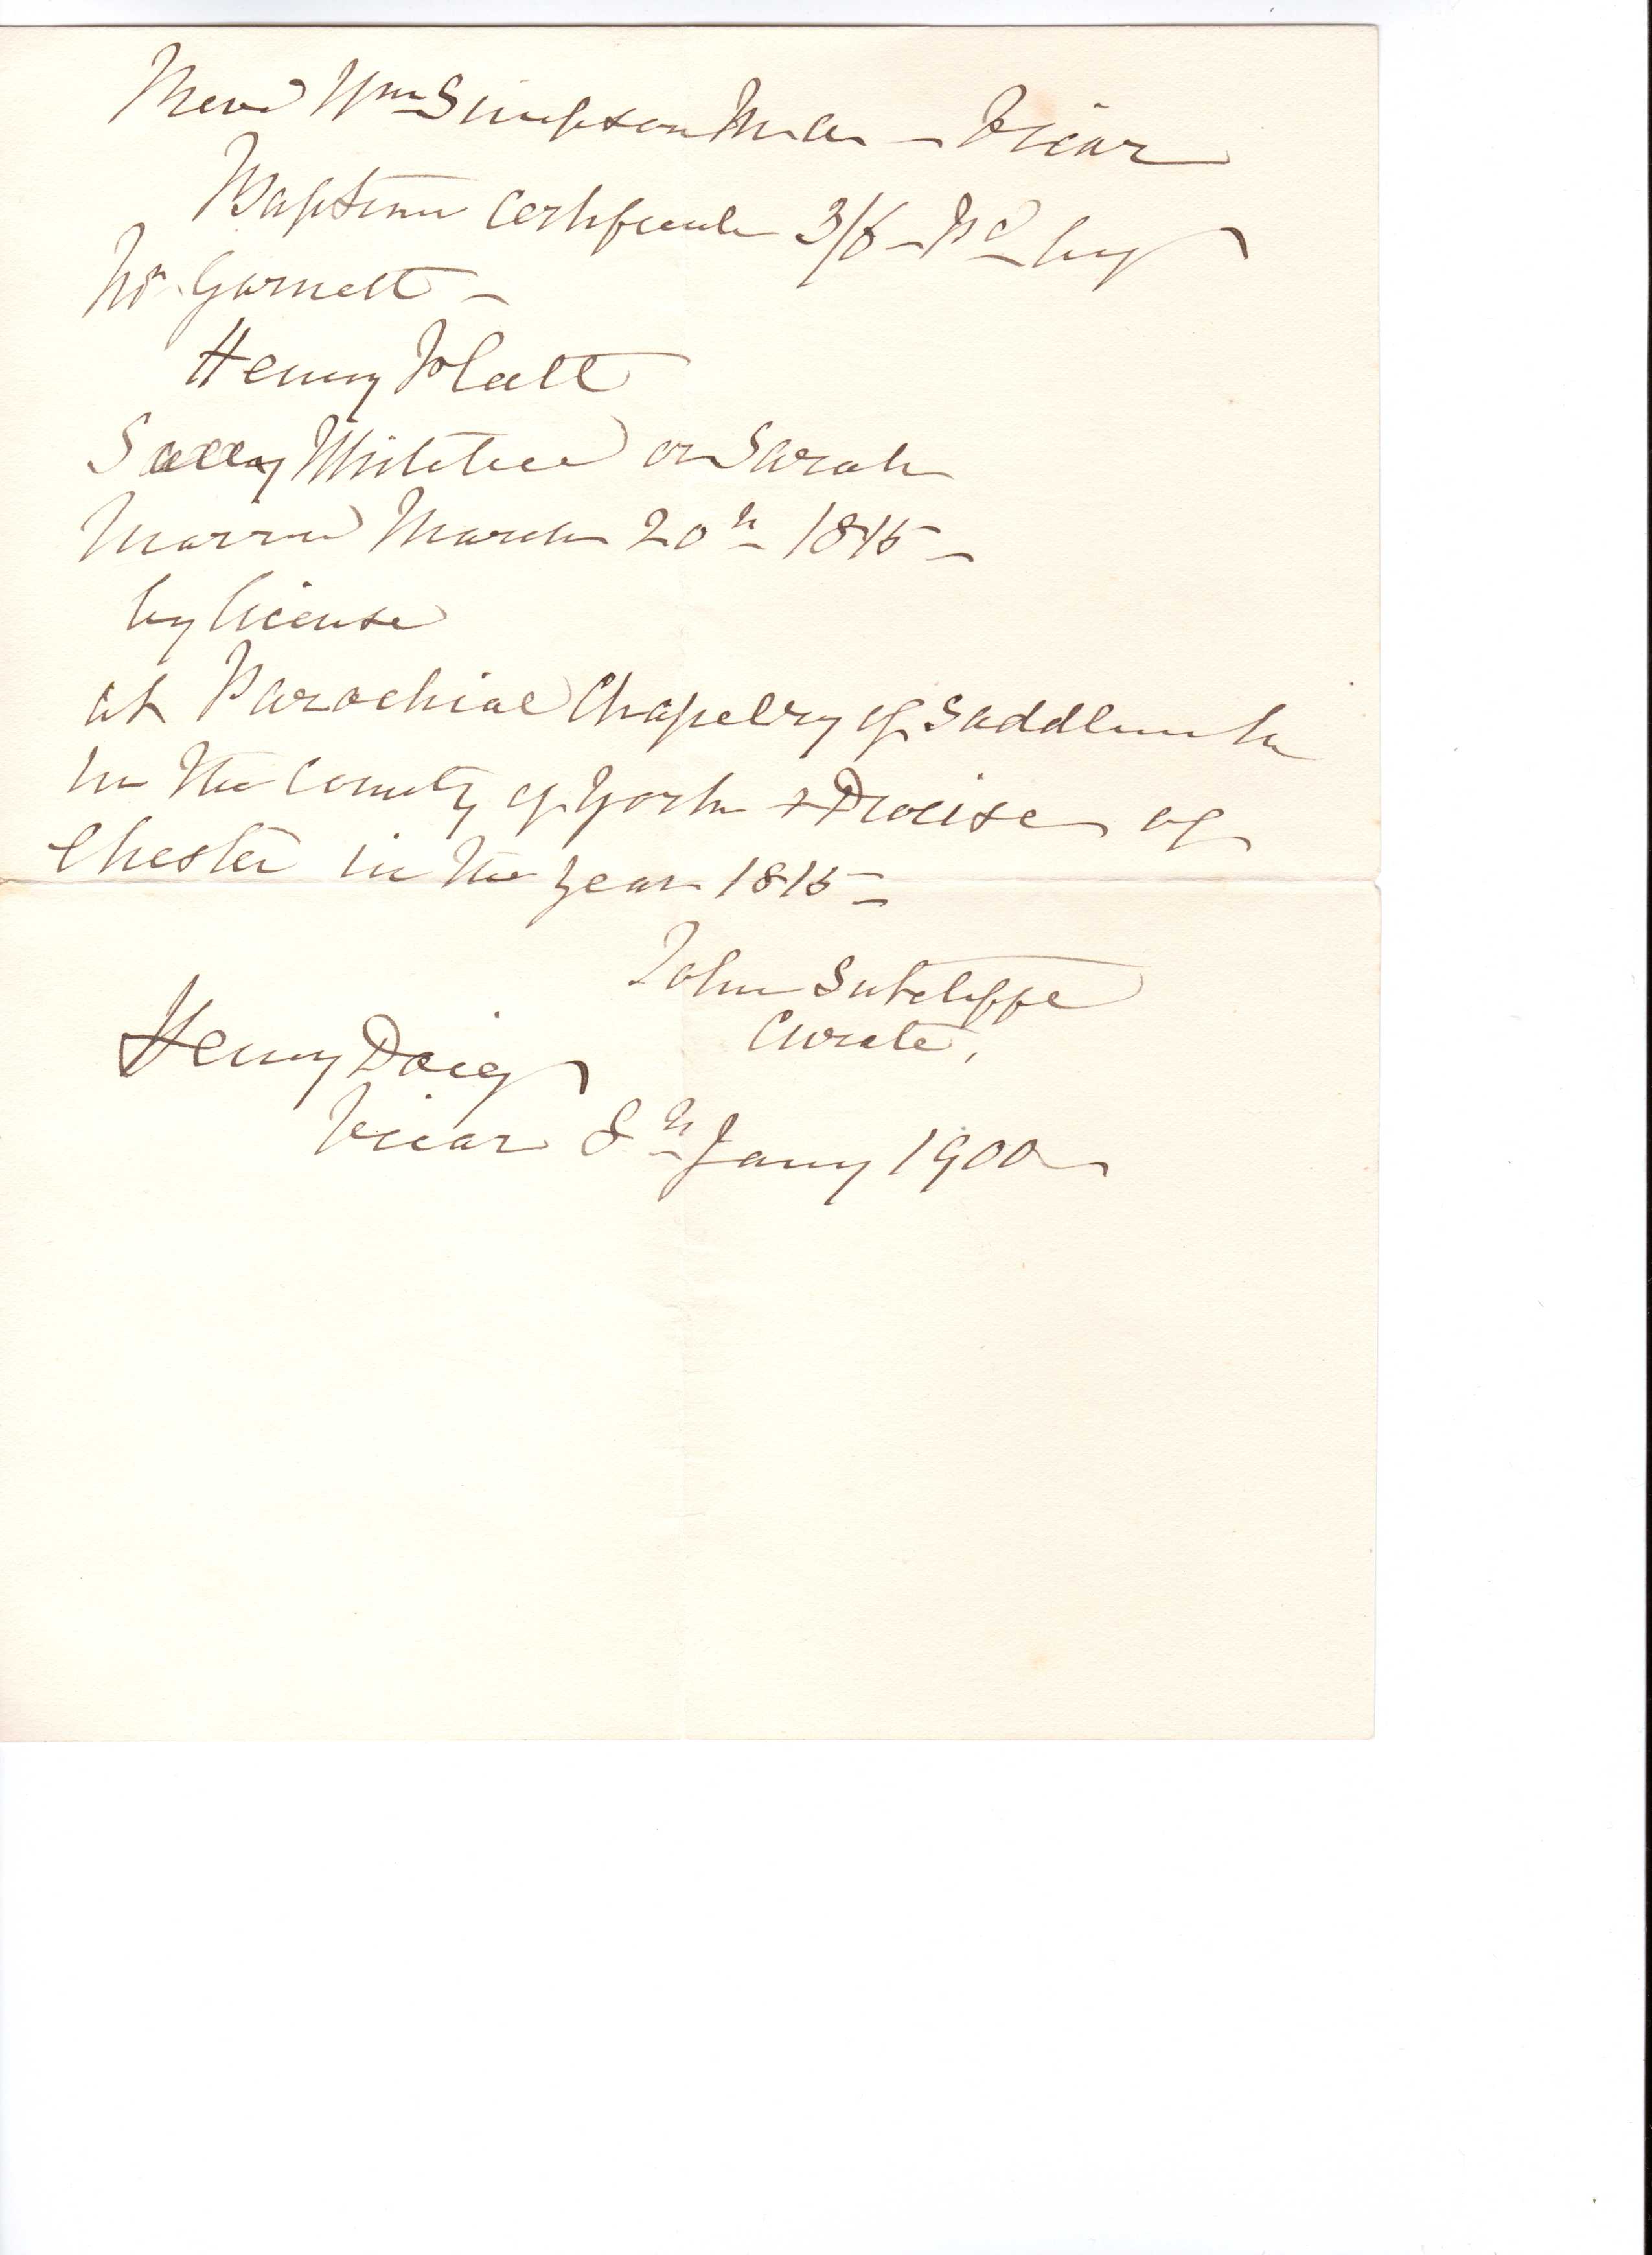 Revd Wm Simpson M.A. – Vicar
Baptism Certificate 3/6 – Pd by
Mr Garnett –
Henry Platt
Sally Whitehead or Sarah
Married March 20th 1815 –
by license
at Parochial Chapelry of Saddleworth
in the County of York & Diocise of
Chester in the year 1815 –
John Sutcliffe
Curate,
Henry Doig
Vicar 8th Jany 1900